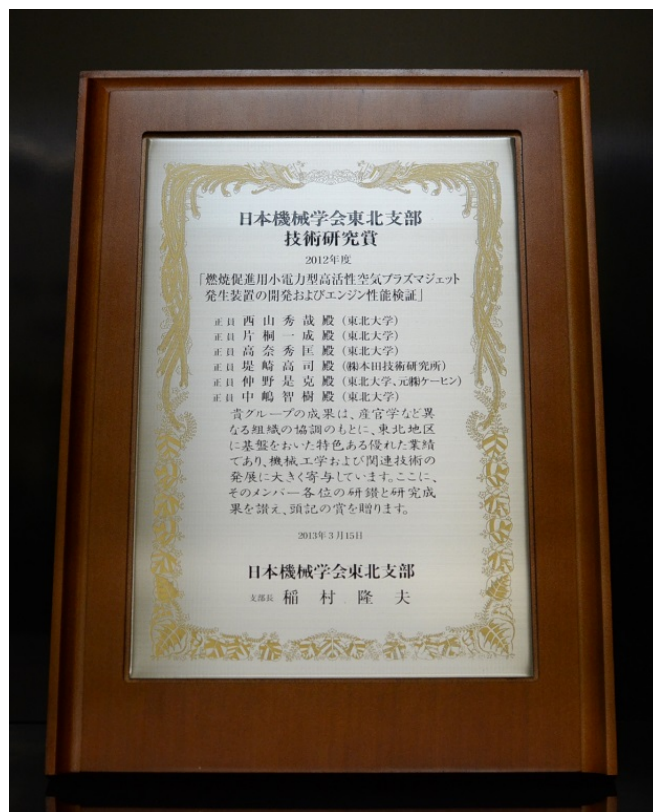 日本機械学会東北支部
技術研究賞
2012年度
「燃焼促進用小電力型高活性空気プラズマジェット
発生装置の開発およびエンジン性能検証」
正員 西山秀哉殿(東北大学)
正員 片桐一成殿(東北大学)
正員 高奈秀匡殿(東北大学)
正員 堤崎高司殿(㈱本田技術研究所)
正員 仲野是克殿(東北大学、元㈱ケーヒン)
正員 中嶋智樹殿(東北大学)
貴グループの成果は、産官学など異
なる組織の協調のもとに、東北地区
に基盤をおいた特色ある優れた業績
であり、機械工学および関連技術の
発展に大きく寄与しています。ここに、
そのメンバー各位の研鑽と研究成
果を讃え、頭記の賞を贈ります。
2013年3月15日
日本機械学会東北支部
支部長 稲村隆夫